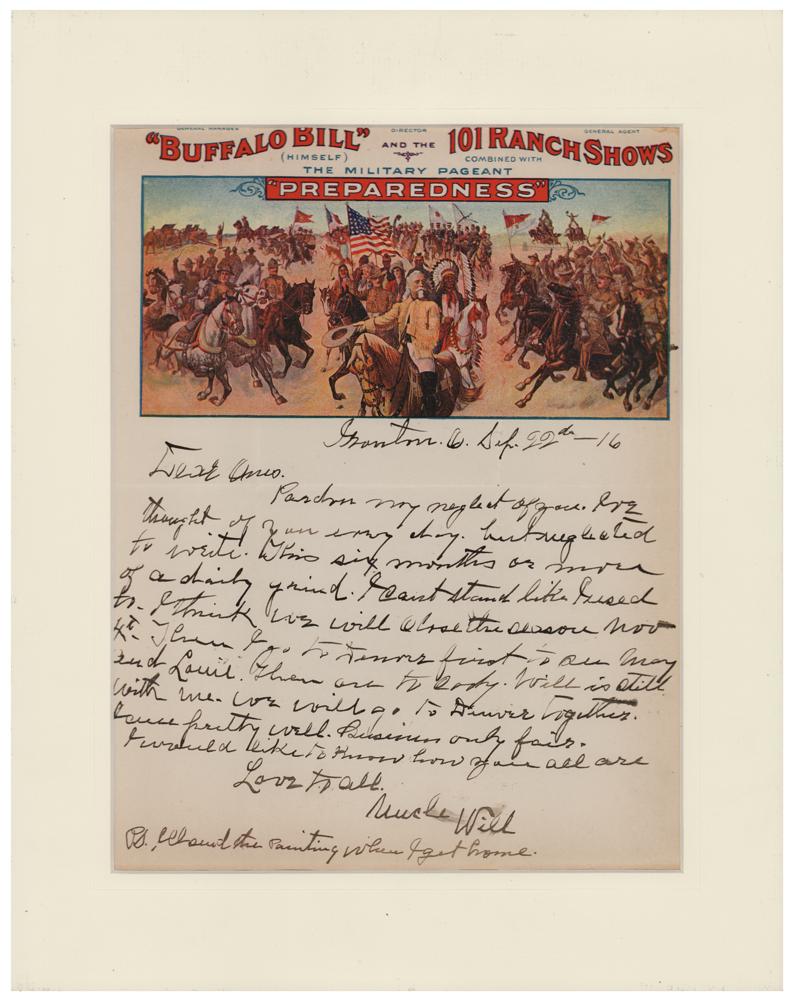 GENERAL MANAGER DIRECTOR GENERAL AGENT
"BUFFALO BILL" AND THE 101 RANCH SHOWS
(HIMSELF) COMBINED WITH
THE MILITARY PAGEANT
"PREPAREDNESS"
Ironton. O. Sep. 22nd—16
Dear
Pardon my neglect of you. I've
thought of you every day. but neglected
to write. This six months or more
of a daily grind. I cant stand like I used
to. I think we will close the season Nov
4th. Then I go to Denver first to see May
and Louie. Then on to Cody. Will is still
with me. we will go to Denver together.
I am pretty well. Business only fair.
I would like to know how you all are
Love to all.
Uncle Will
PS. I'll send the Painting when I get home.